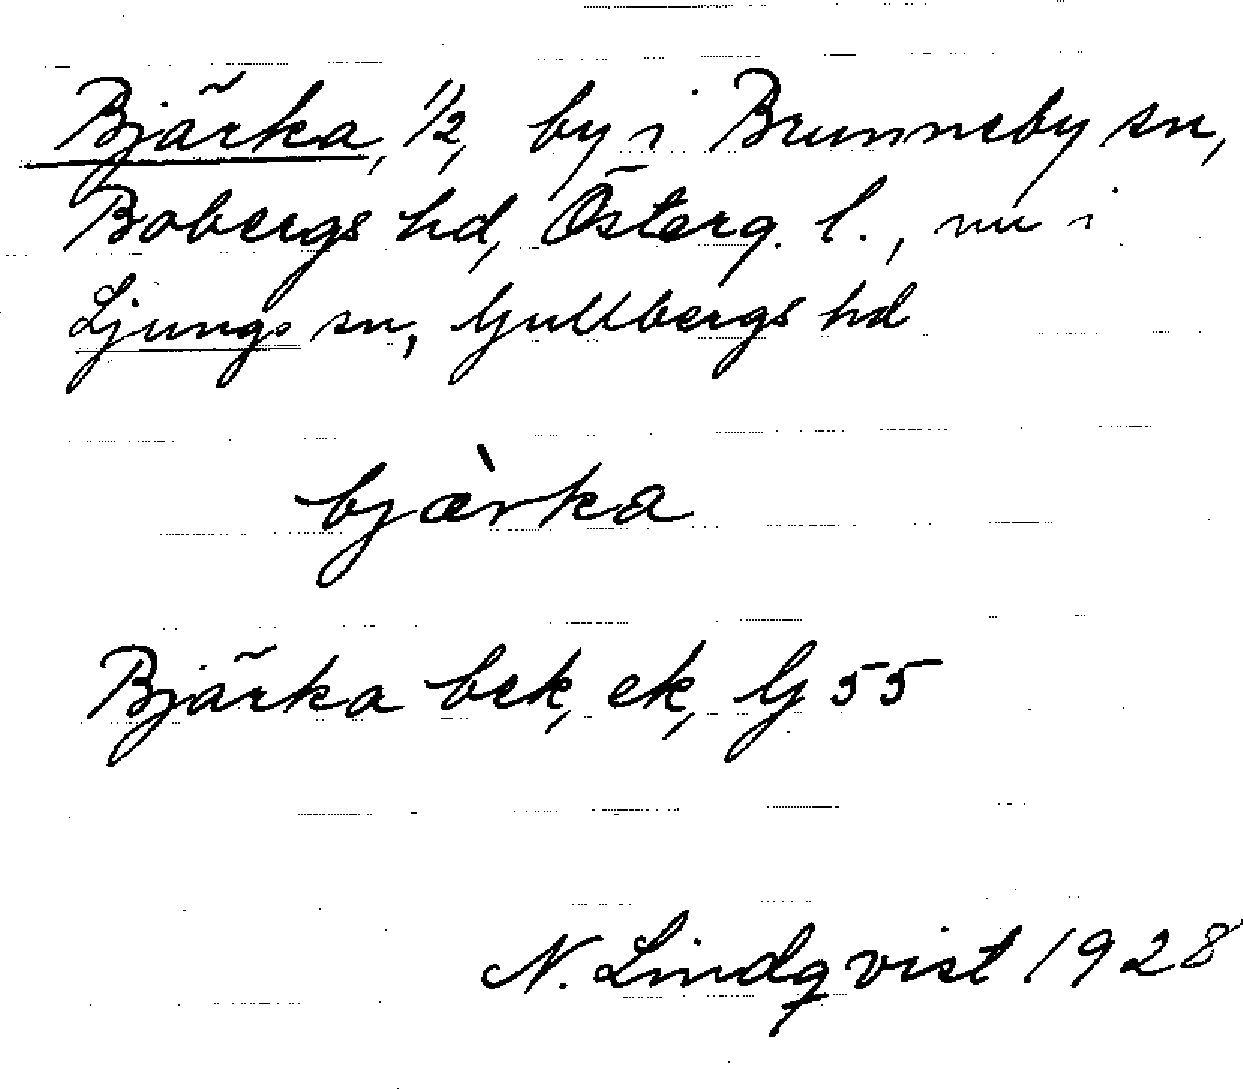 Bjärka, 1/2, by i Brunneby sn,
Bobergs hd, Österg. l., nu i
Ljungs sn, Gullbergs hd
bjæ̀rka
Bjärka bek, ek, G 55
N. Lindqvist 1928